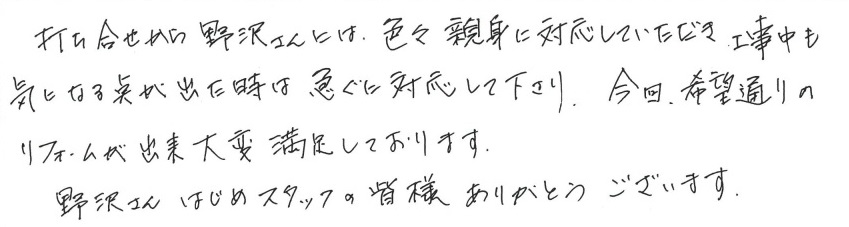 打ち合せから野沢さんには、色々親身に対応していただき工事中も
気になる点が出た時は急ぐに対応して下さり、今回、希望通りの
リフォームが出来大変満足しております。
野沢さんはじめスタッフの皆様ありがとうございます。